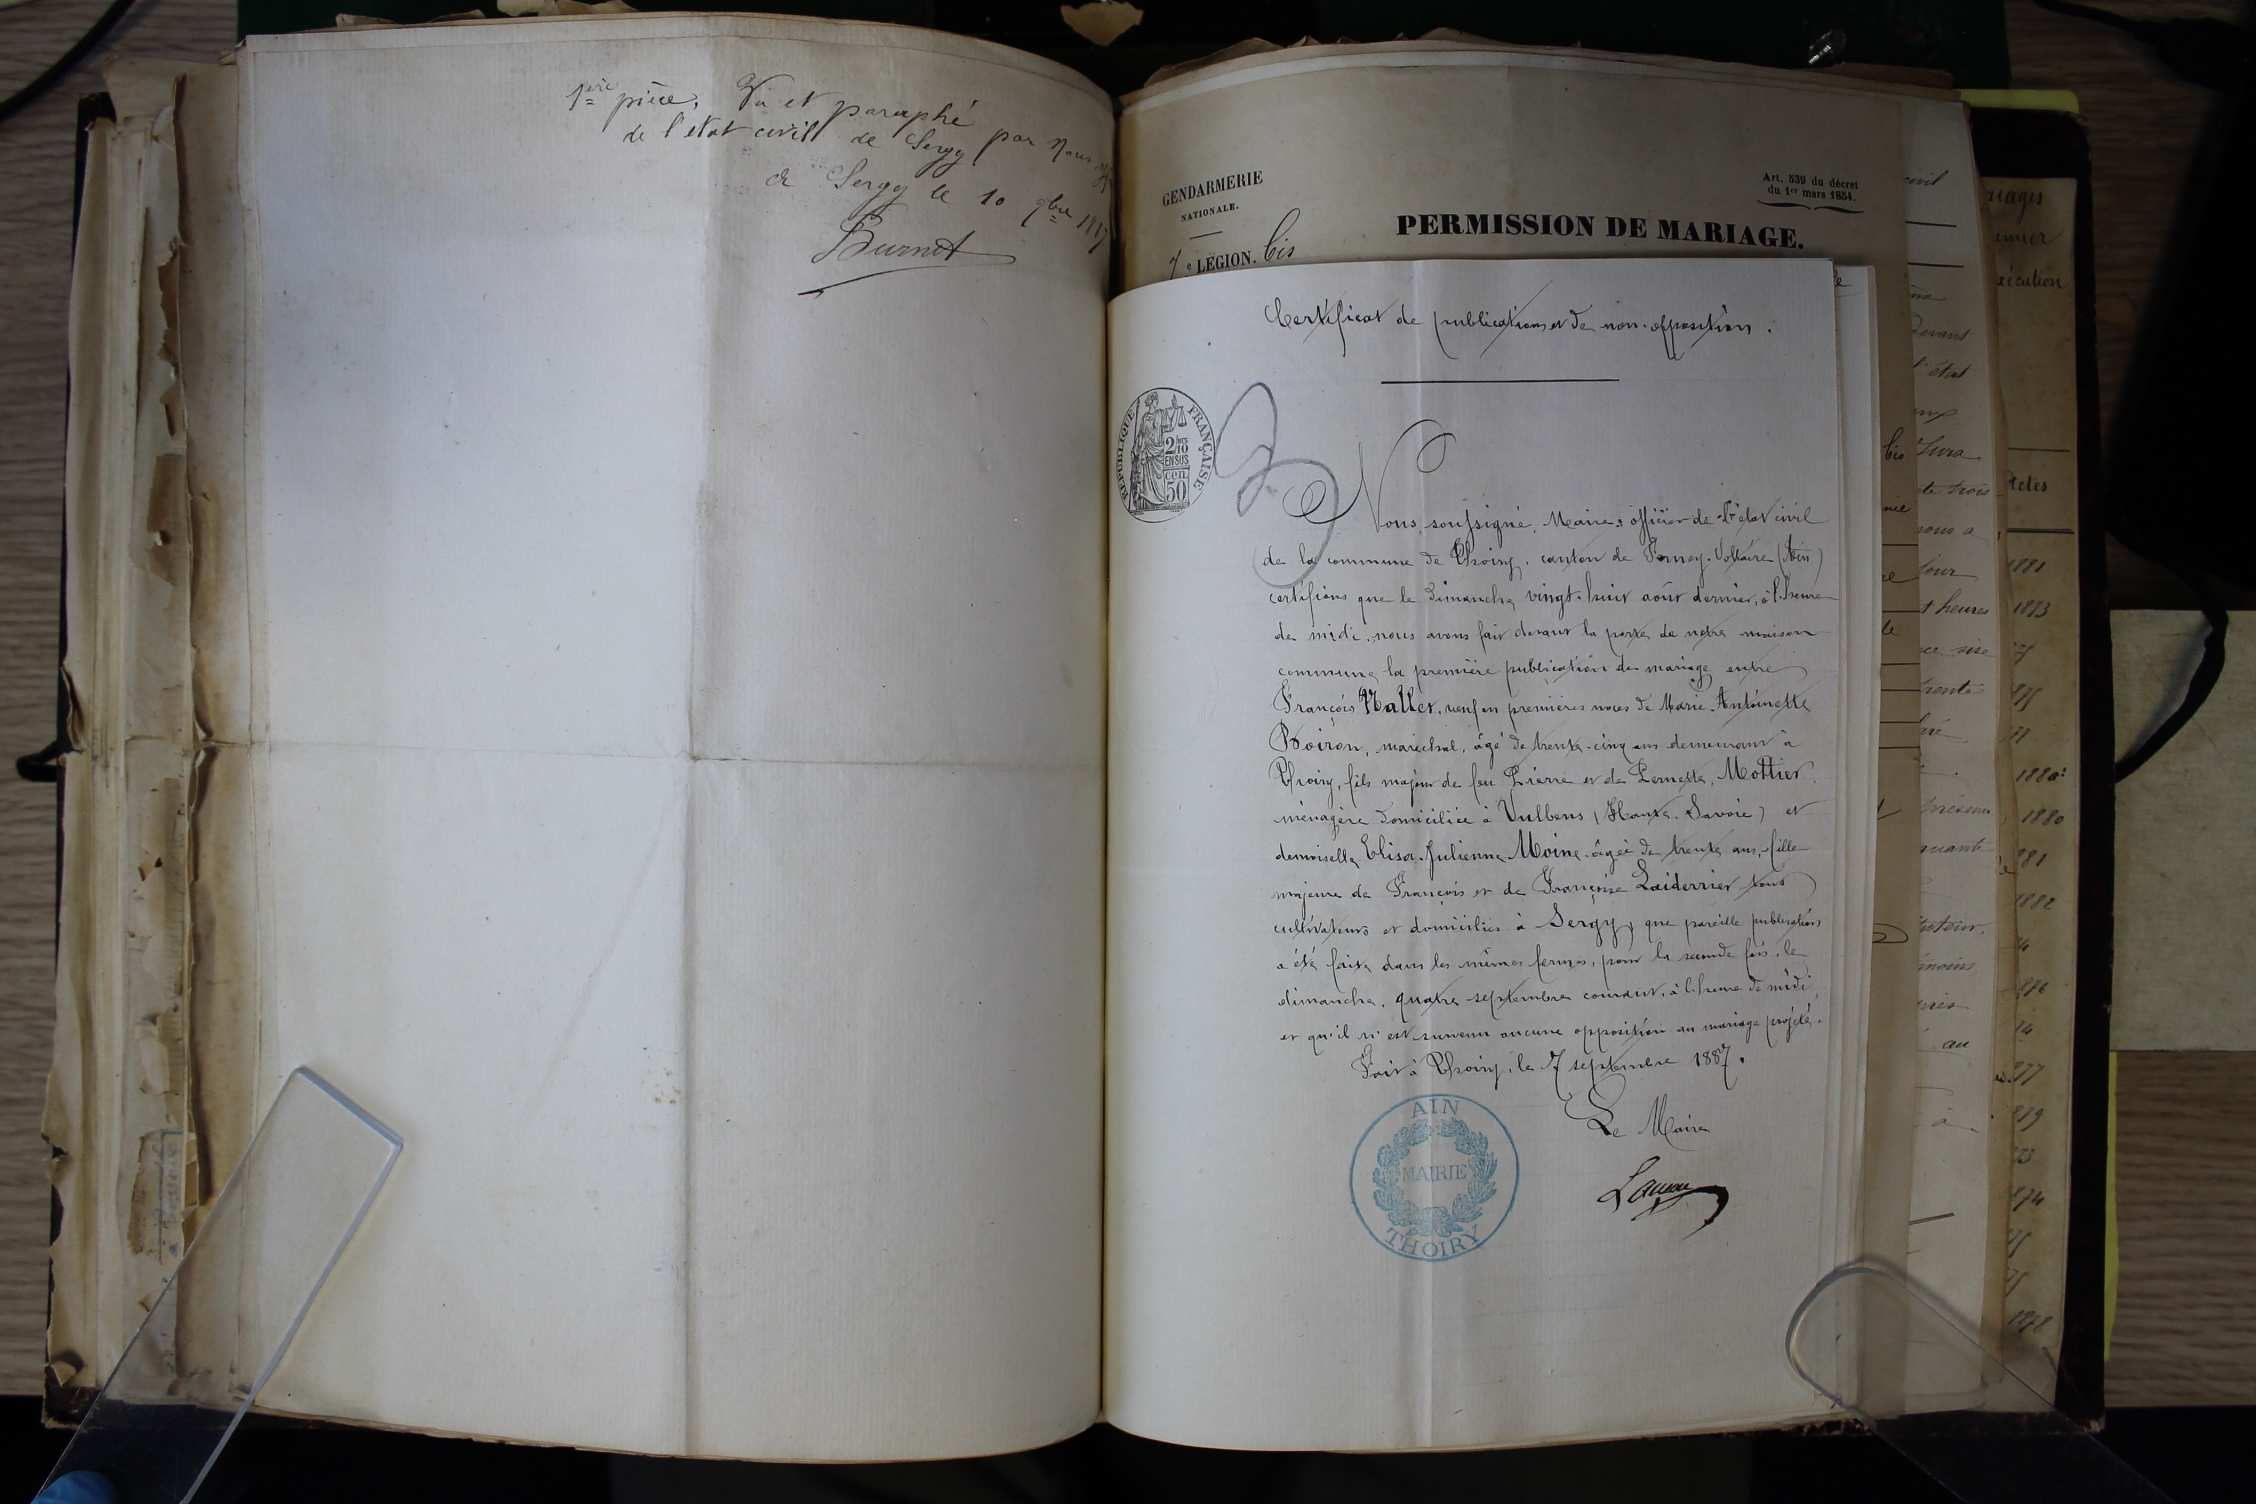 1ère pièce, Vu et paraphé par Nous off
de l'etat civil de Sergy
à Sergy le 10 9bre 1887
Burnet
GENDARMERIE
NATIONALE.
7e LÉGION. bis
Art. 539 du décret
du 1er mars 1854.
PERMISSION DE MARIAGE.
Certificat de publications et de non-opposition.
RÉPUBLIQUE FRANÇAISE
2/10
EN SUS
50 cen.
Nous, soussigné, Maire, officier de l'état civil
de la commune de Thoiry, canton de Ferney-Voltaire (Ain)
certifions que le dimanche, vingt-huit août dernier, à l'heure
de midi, nous avons fait devant la porte de notre maison
commune, la première publication de mariage entre
François Hallet, veuf en premières noces de Marie-Antoinette
Boiron, maréchal, âgé de trente-cinq ans demeurant à
Thoiry, fils majeur de feu Pierre et de Pernette, Mottier,
ménagère domiciliée à Vulbens (Haute-Savoie) et
demoiselle Elisa-Julienne Moine, âgée de trente ans, fille
majeure de François et de Françoise Laiderrier tous
cultivateurs et domiciliés à Sergy, que pareille publication
a été faite dans les mêmes formes, pour la seconde fois, le
dimanche, quatre septembre courant, à l'heure de midi
et qu'il n'est survenu aucune opposition au mariage projeté.
Fait à Thoiry, le 7 septembre 1887.
Le Maire
AIN
MAIRIE
THOIRY
civil
devant
l'état
bis Jura
te trois
nous a
jour
t heures
trente
au
à
riages
Actes
1881
1873
1880
1880
881
1882
877
874
1878